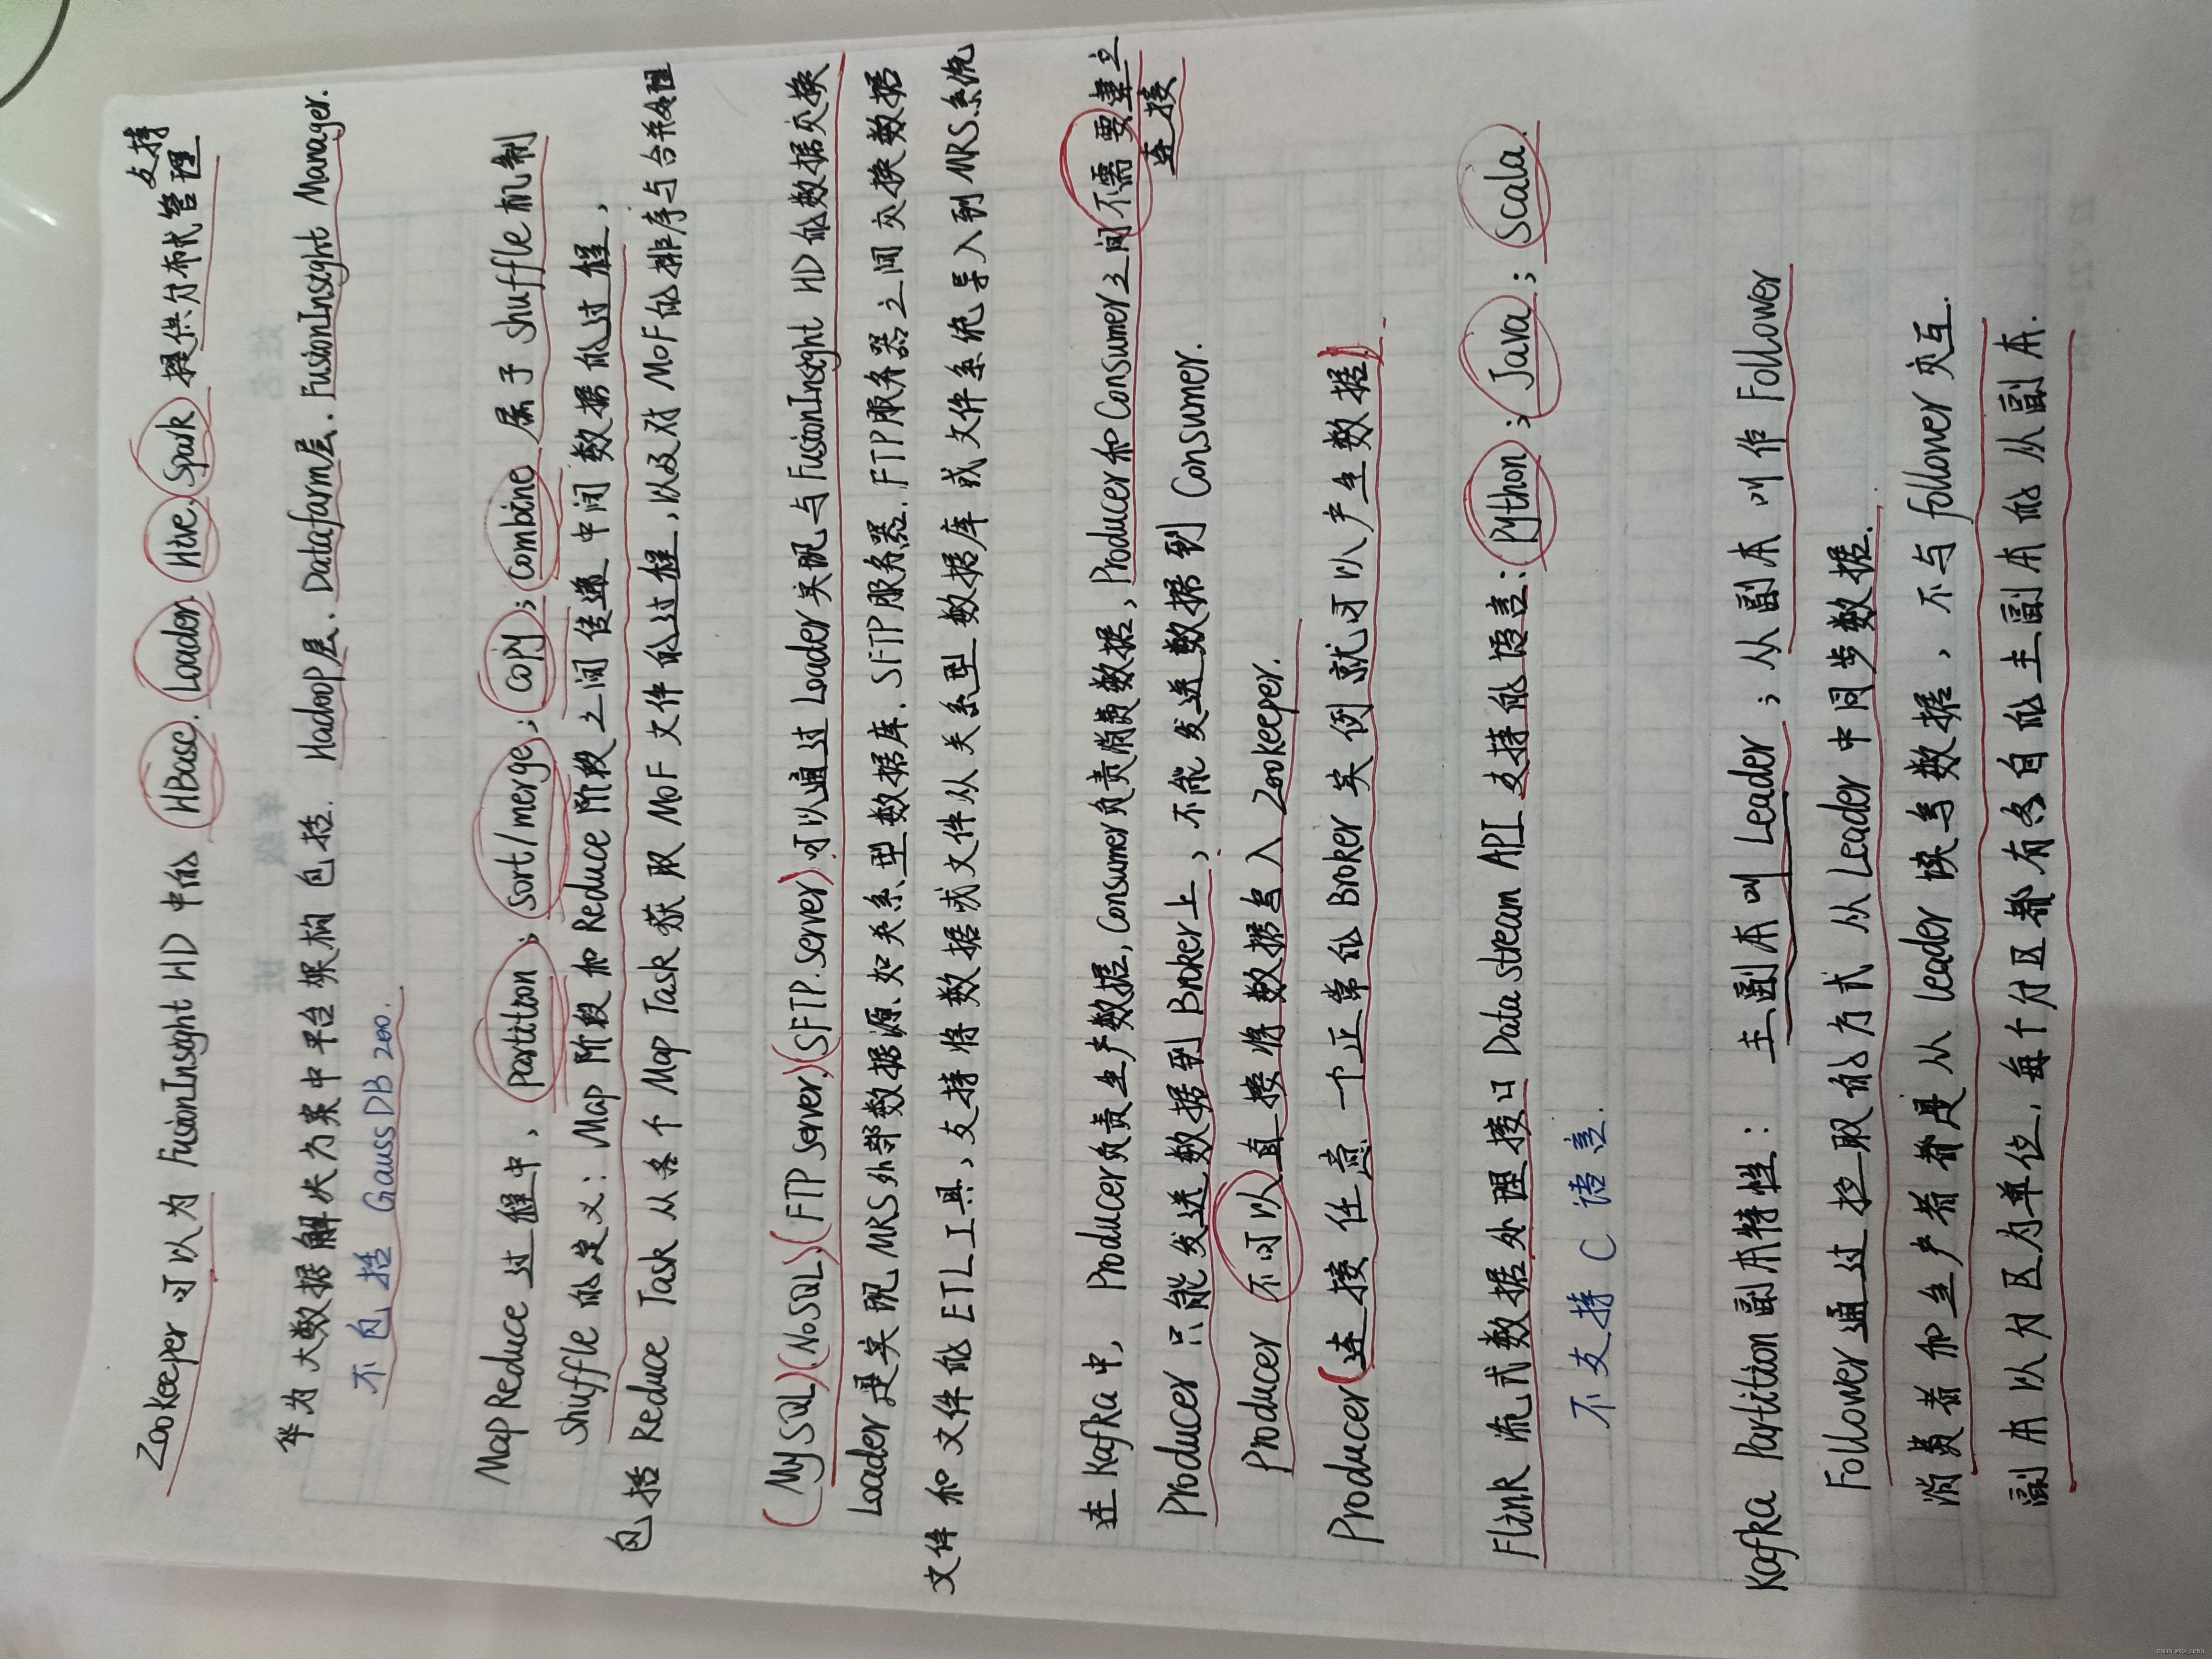 Zookeeper 可以为 FusionInsight HD 中的 HBase. Loader. Hive. Spark 提供分布式管理支持
华为大数据解决方案中平台架构包括. Hadoop层. Datafarm层. FusionInsight Manager.
不包括 GaussDB 200.
MapReduce 过程中, partition; sort/merge; copy; combine 属于 shuffle 机制
shuffle 的定义: Map 阶段和 Reduce 阶段之间传递中间数据的过程,
包括 Reduce Task 从各个 Map Task 获取 MOF 文件的过程, 以及对 MOF 的排序与合并处理
(MySQL)(NoSQL)(FTP server)(SFTP.server)可以通过 Loader 实现与 FusionInsight HD 的数据交换
Loader是实现 MRS外部数据源.如关系型数据库. SFTP服务器. FTP服务器之间交换数据
文件和文件的ETL工具, 支持将数据或文件从关系型数据库或文件系统导入到 MRS系统
在Kafka中, Producer负责生产数据, Consumer负责消费数据, Producer和Consumer之间不需要建立连接
Producer 只能发送数据到 Broker上, 不能发送数据到 Consumer.
Producer 不可以直接将数据写入 Zookeeper.
Producer(连接任意一个正常的 Broker 实例就可以产生数据)
Flink 流式数据处理接口 Data stream API 支持的语言: Python; Java; Scala.
不支持 C 语言.
Kafka Partition 副本特性: 主副本叫 Leader; 从副本叫作 Follower
Follower通过拉取的方式从 Leader 中同步数据.
消费者和生产者都是从 leader 读写数据, 不与 follower 交互.
副本以分区为单位, 每个分区都有各自的主副本的从副本.
CSDN @Cz_1053